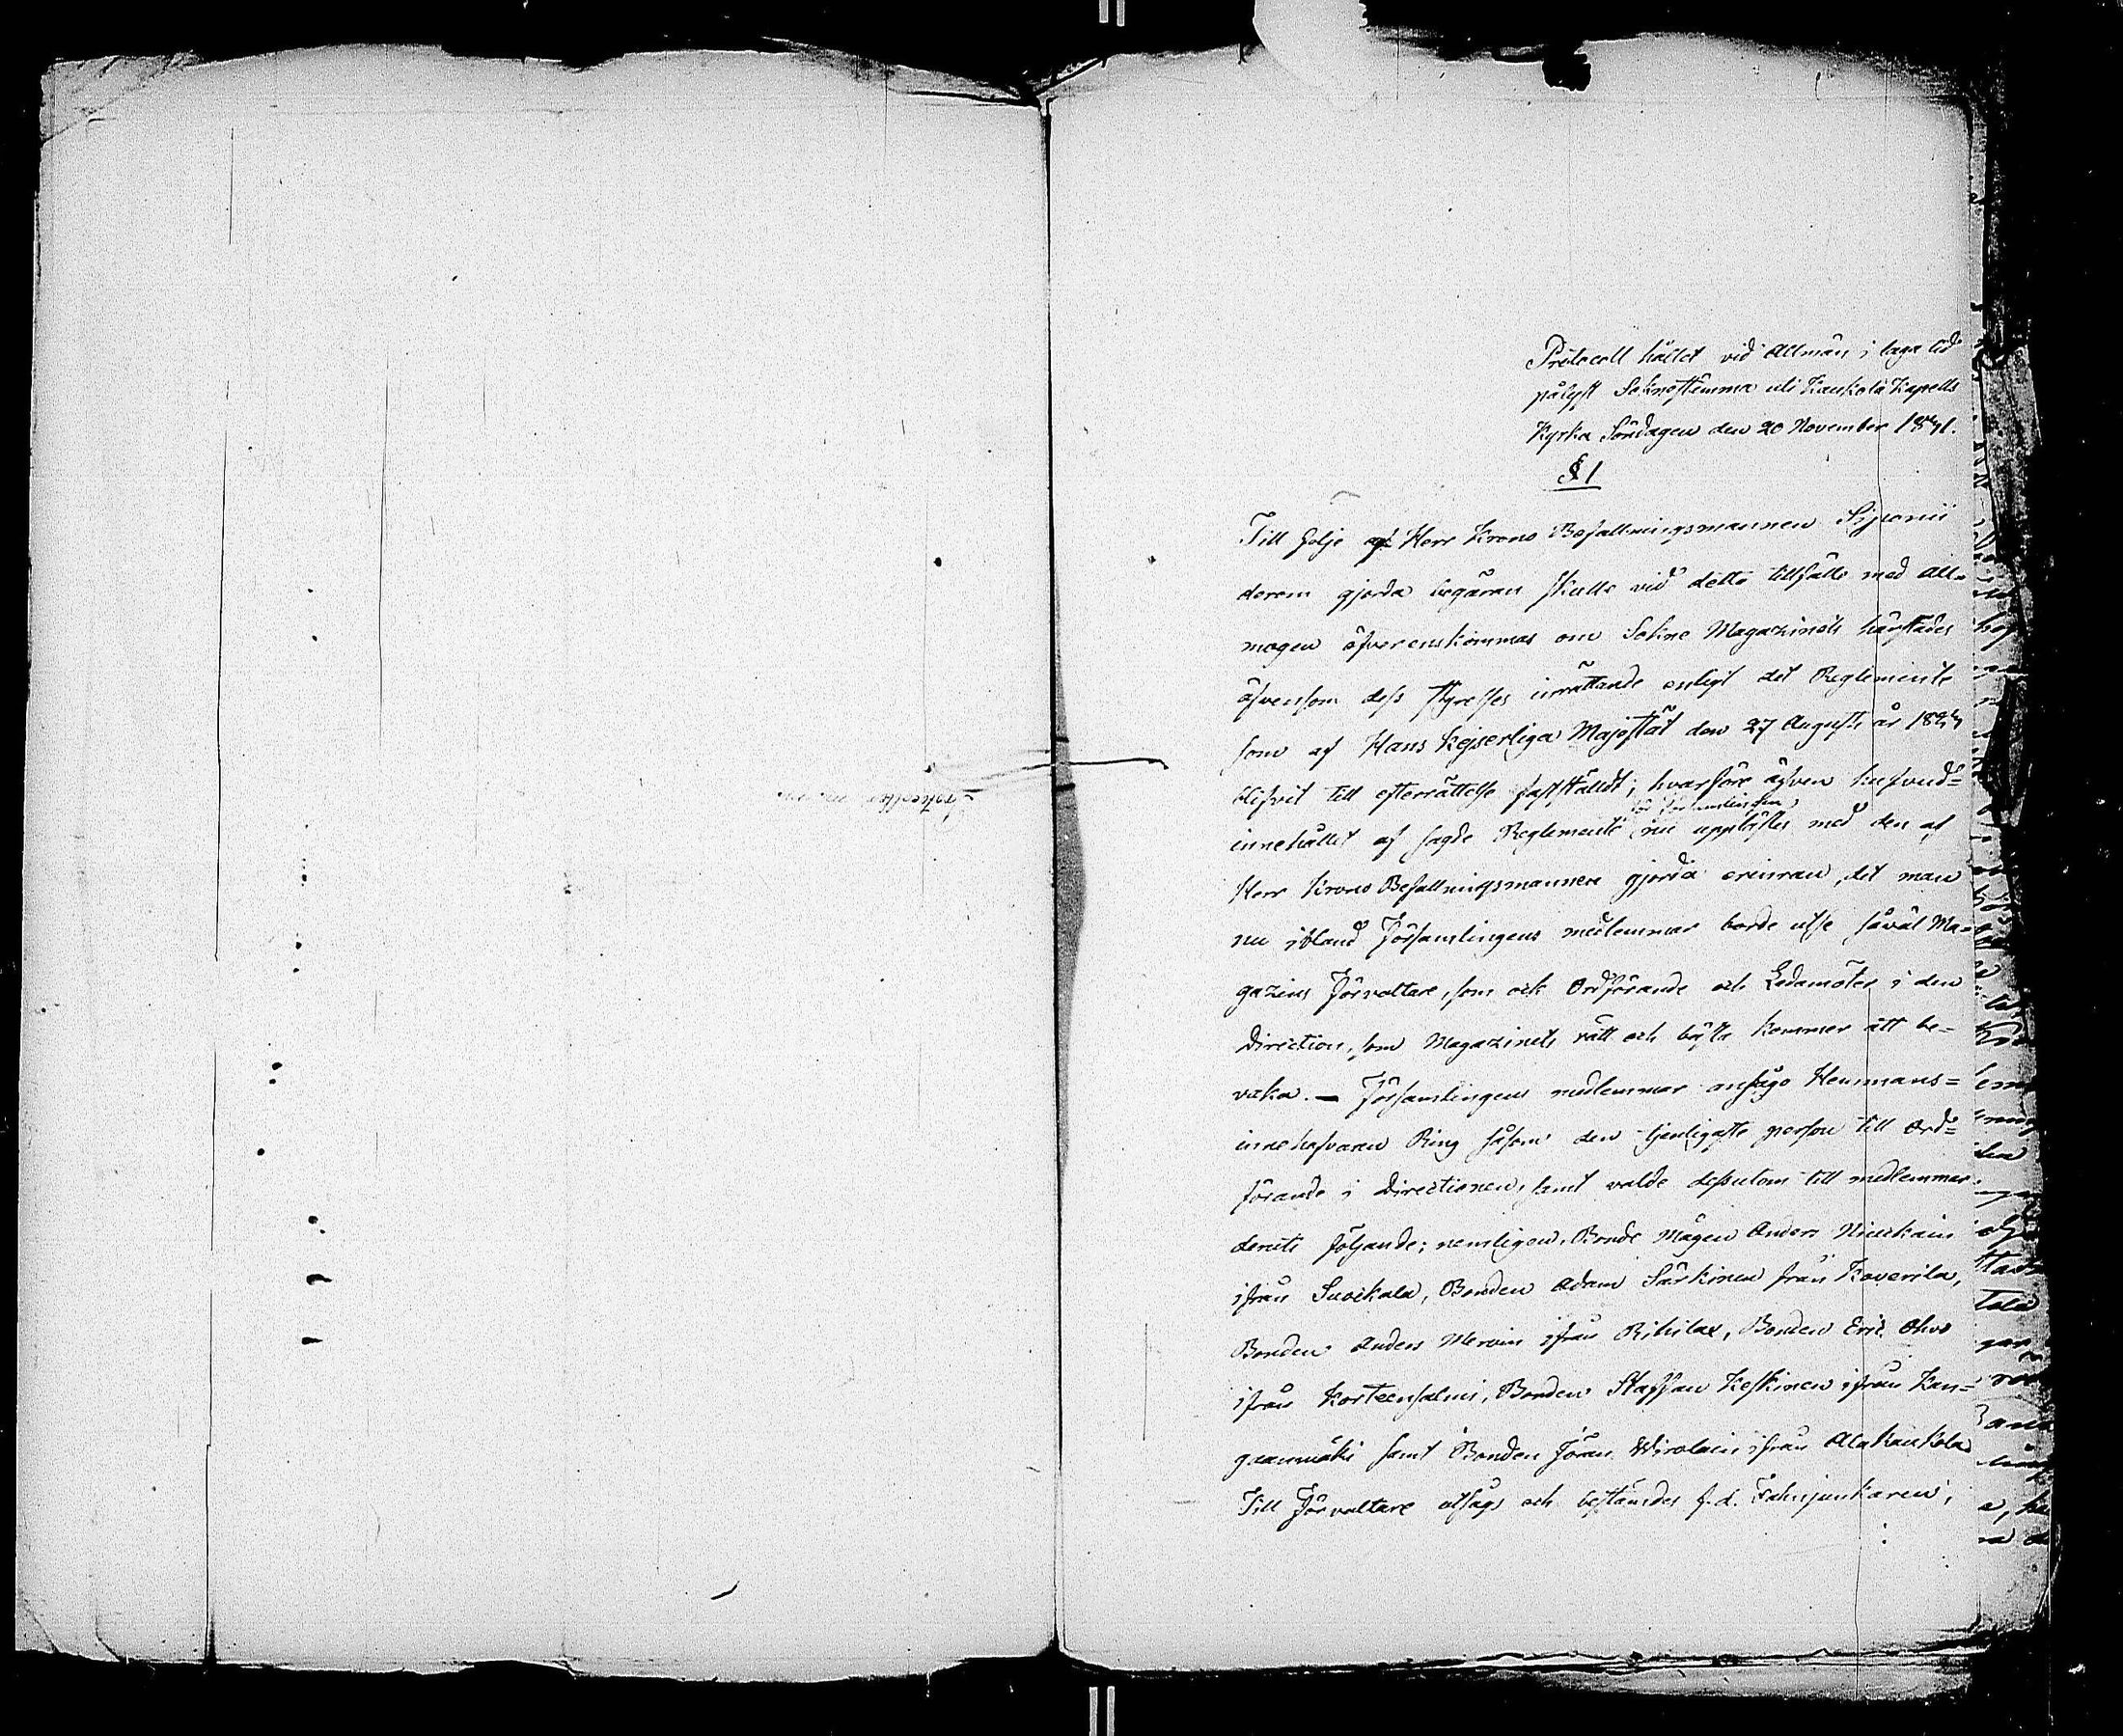 Protocoll hållet vid Allmän i laga tid
pålyst Soknestämma uti Kaukola Kapells
Kyrka Söndagen den 20 November 1841.
§ 1
Till följe af Herr Krono Befallningsmannen Siponii
derom gjorda begäran skulle vid detta tillfälle med All-
mogen öfverenskommas om Sokne Magazinets härstädes
äfvensom dess styrelses inrättande enligt det Reglemente
som af Hans Kejserliga Majestät den 27 Augusti år 18
blifvit till efterrättelse faststäldt; hvarföre äfven hufvud-
innehållet af sagde Reglemente för Församlingen nu upplästes med den af
Herr Krono Befallningsmannen gjorda erinran, det man
nu ibland Församlingens medlemmar borde utse såväl Ma-
gazins Förvaltare, som ock Ordförande och Ledamöter i den
Direction, som Magazinets rätt och bästa kommer att be-
vaka. — Församlingens medlemmar ansågo Hemmans-
innehafvaren Ring såsom den tjenligaste person till Ord-
förande i Directionen, samt valde dessutom till medlemmar
deruti följande; nemligen, Bonde Mågen Anders
ifrån Suvikala, Bonden Adam Särkinen från Koverila,
Bonden Anders Mervin ifrån Rihilax, Bonden Eric Ohvo
ifrån Korteensalmi, Bonden Staffan Keskinen ifrån Kan-
gasmäki samt Bonden Jöran Wirolain ifrån Alakaukola
Till Förvaltare utsågs och bestämdes f.d. Fahnjunkaren,